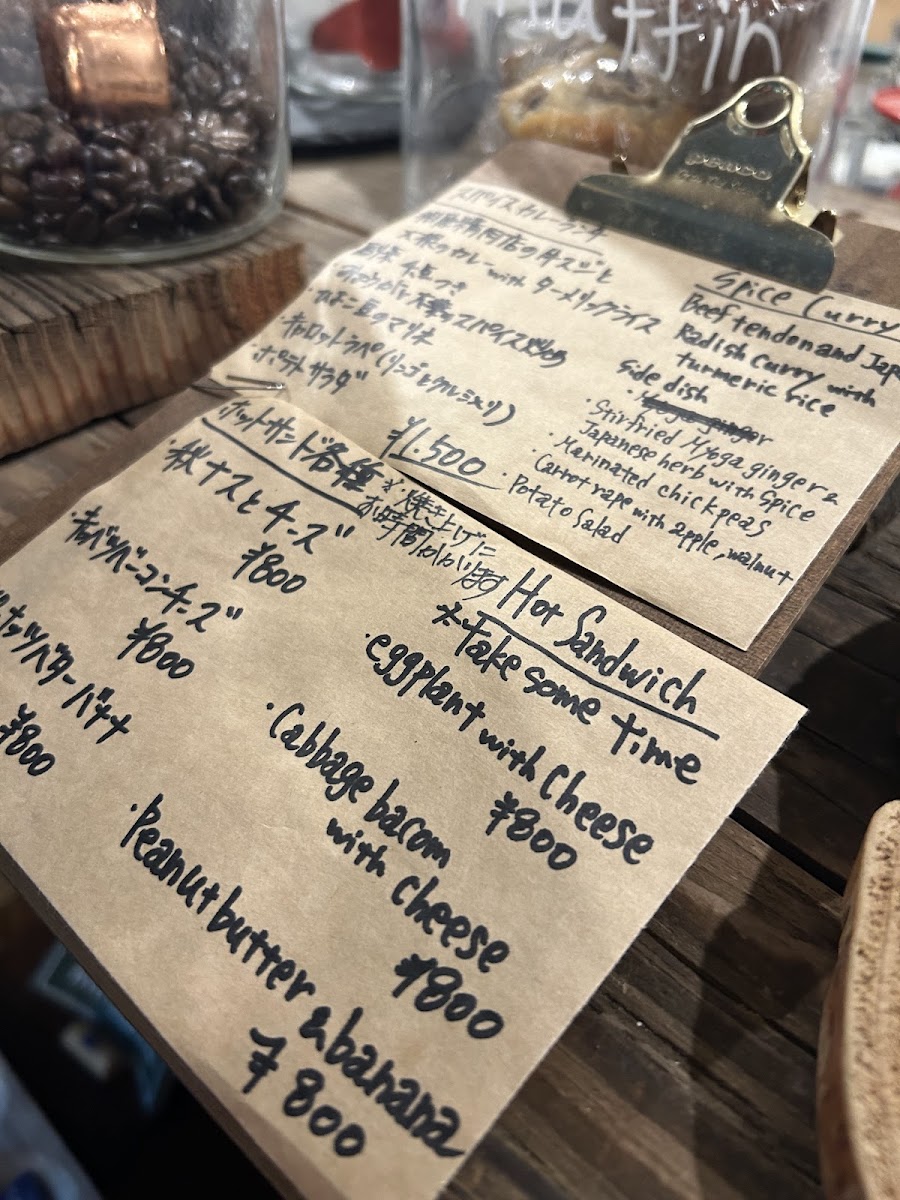 muffin
スパイスカレーランチ
牛スジと
大根のカレー with ターメリックライス
副菜 4点つき
ひよこ豆のマリネ
キャロットラペ(リンゴとクルミ入り)
ポテトサラダ
¥1.500
Spice Curry
Beef tendon and Jap
Radish Curry with
turmeric rice
Side dish
・Stirfried Myoga ginger &
Japanese herb with spice
・Marinated chickpeas
・Carrot rape with apple, walnut
・Potato Salad
ホットサンド各種
※焼き上げに
お時間かかります
・秋ナスとチーズ
¥800
・キャベツベーコンチーズ
¥800
ピーナッツバターバナナ
¥800
Hot Sandwich
※Take some time
・eggplant with Cheese
¥800
・Cabbage bacom
with cheese
¥800
・Peanut butter & banana
¥800